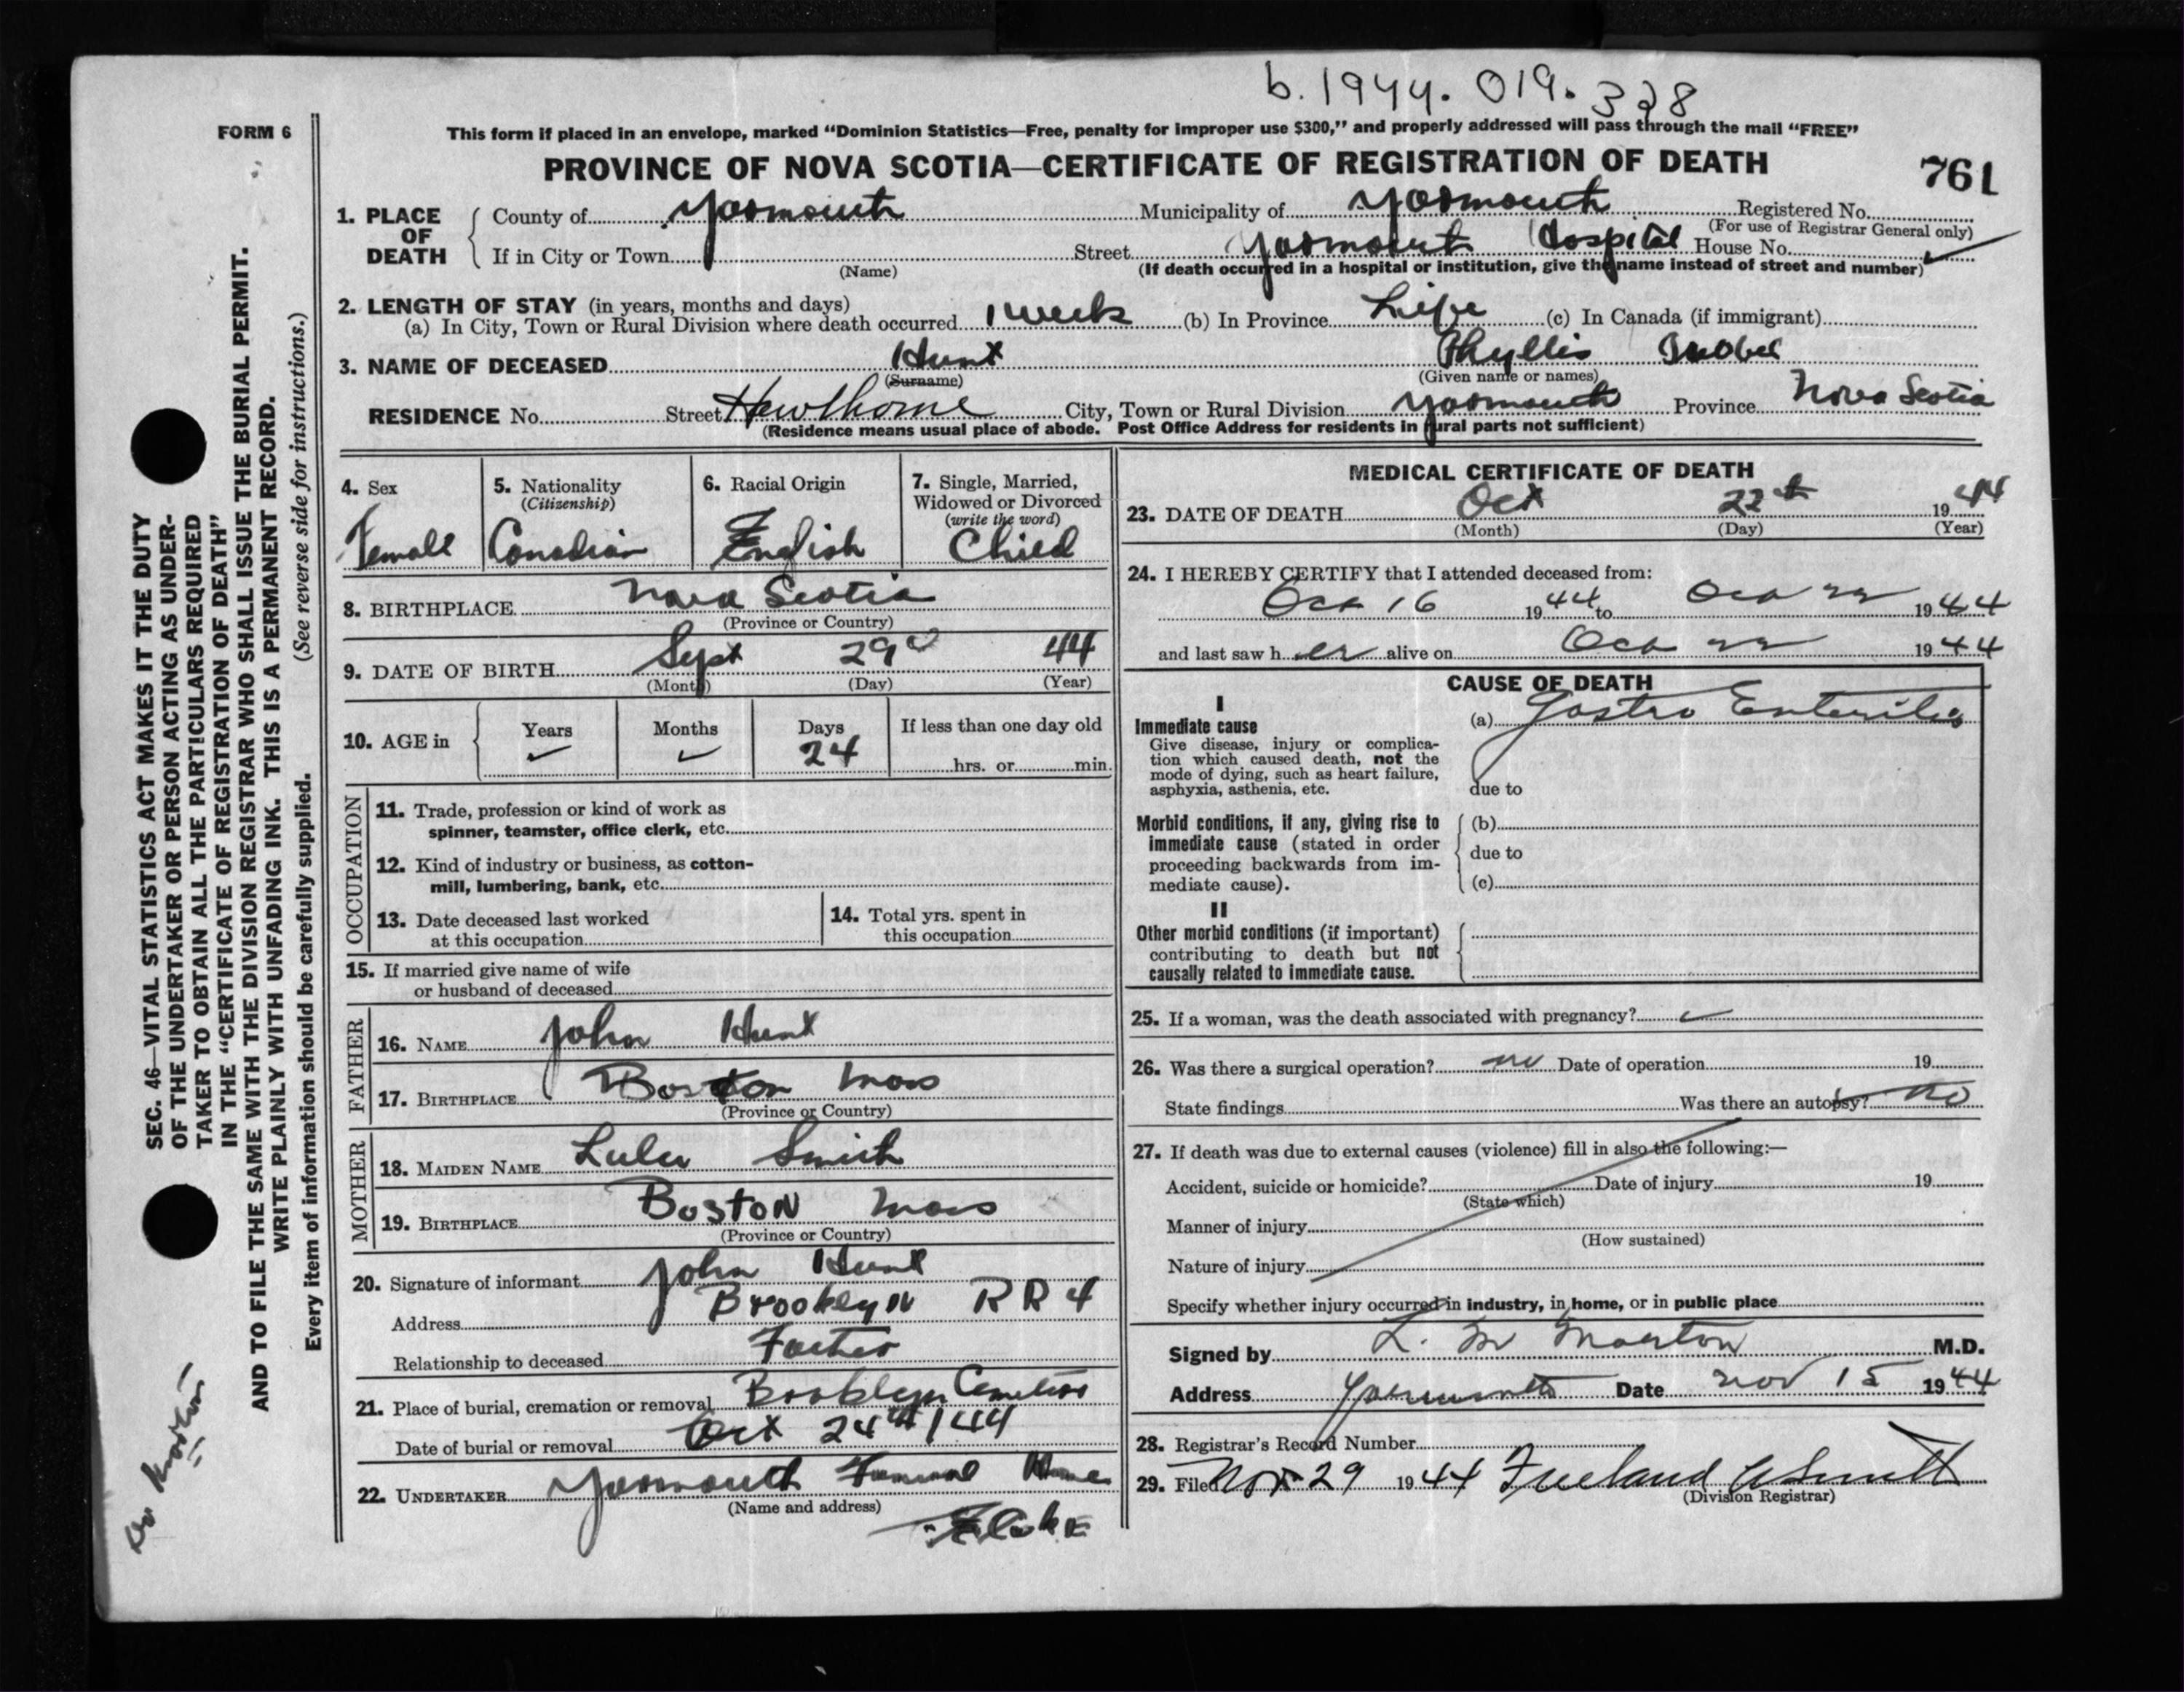 b. 1944. 019. 328
FORM 6
This form if placed in an envelope, marked “Dominion Statistics—Free, penalty for improper use $300,” and properly addressed will pass through the mail “FREE”
PROVINCE OF NOVA SCOTIA—CERTIFICATE OF REGISTRATION OF DEATH
761
1. PLACE OF DEATH
County of Yarmouth Municipality of Yarmouth Registered No.
(For use of Registrar General only)
If in City or Town Street Yarmouth Hospital House No.
(Name) (If death occurred in a hospital or institution, give the name instead of street and number)
2. LENGTH OF STAY (in years, months and days)
(a) In City, Town or Rural Division where death occurred 1 week (b) In Province Life (c) In Canada (if immigrant)
3. NAME OF DECEASED Hunt Phyllis Isobel
(Surname) (Given name or names)
RESIDENCE No. Street Hawthorne City, Town or Rural Division Yarmouth Province Nova Scotia
(Residence means usual place of abode. Post Office Address for residents in rural parts not sufficient)
4. Sex
Female
5. Nationality
(Citizenship)
Canadian
6. Racial Origin
English
7. Single, Married,
Widowed or Divorced
(write the word)
Child
8. BIRTHPLACE Nova Scotia
(Province or Country)
9. DATE OF BIRTH Sept 29 44
(Month) (Day) (Year)
10. AGE in
Years Months Days If less than one day old
24
hrs. or min.
OCCUPATION
11. Trade, profession or kind of work as
spinner, teamster, office clerk, etc.
12. Kind of industry or business, as cotton-
mill, lumbering, bank, etc.
13. Date deceased last worked
at this occupation
14. Total yrs. spent in
this occupation
15. If married give name of wife
or husband of deceased
FATHER
16. NAME John Hunt
17. BIRTHPLACE Boston Mass
(Province or Country)
MOTHER
18. MAIDEN NAME Lulu Smith
19. BIRTHPLACE Boston Mass
(Province or Country)
20. Signature of informant John Hunt
Address Brooklyn RR 4
Relationship to deceased Father
21. Place of burial, cremation or removal Brooklyn Cemetery
Date of burial or removal Oct 24th / 44
22. UNDERTAKER Yarmouth Funeral Home
(Name and address)
MEDICAL CERTIFICATE OF DEATH
23. DATE OF DEATH Oct 22th 1944
(Month) (Day) (Year)
24. I HEREBY CERTIFY that I attended deceased from:
Oct 16 1944 to Oct 22 1944
and last saw her alive on Oct 22 1944
CAUSE OF DEATH
I
Immediate cause
Give disease, injury or complica-
tion which caused death, not the
mode of dying, such as heart failure,
asphyxia, asthenia, etc.
(a) Gastro Enteritis
due to
Morbid conditions, if any, giving rise to
immediate cause (stated in order
proceeding backwards from im-
mediate cause).
(b)
due to
(c)
II
Other morbid conditions (if important)
contributing to death but not
causally related to immediate cause.
25. If a woman, was the death associated with pregnancy?
26. Was there a surgical operation? no Date of operation 19
State findings Was there an autopsy? no
27. If death was due to external causes (violence) fill in also the following:—
Accident, suicide or homicide? Date of injury 19
(State which)
Manner of injury
(How sustained)
Nature of injury
Specify whether injury occurred in industry, in home, or in public place
Signed by L. M Morton M.D.
Address Yarmouth Date Nov 15 1944
28. Registrar's Record Number
29. Filed Nov 29 1944 Freeland
(Division Registrar)
SEC. 46—VITAL STATISTICS ACT MAKES IT THE DUTY
OF THE UNDERTAKER OR PERSON ACTING AS UNDER-
TAKER TO OBTAIN ALL THE PARTICULARS REQUIRED
IN THE “CERTIFICATE OF REGISTRATION OF DEATH”
AND TO FILE THE SAME WITH THE DIVISION REGISTRAR WHO SHALL ISSUE THE BURIAL PERMIT.
WRITE PLAINLY WITH UNFADING INK. THIS IS A PERMANENT RECORD.
Every item of information should be carefully supplied. (See reverse side for instructions.)
Dr Morton